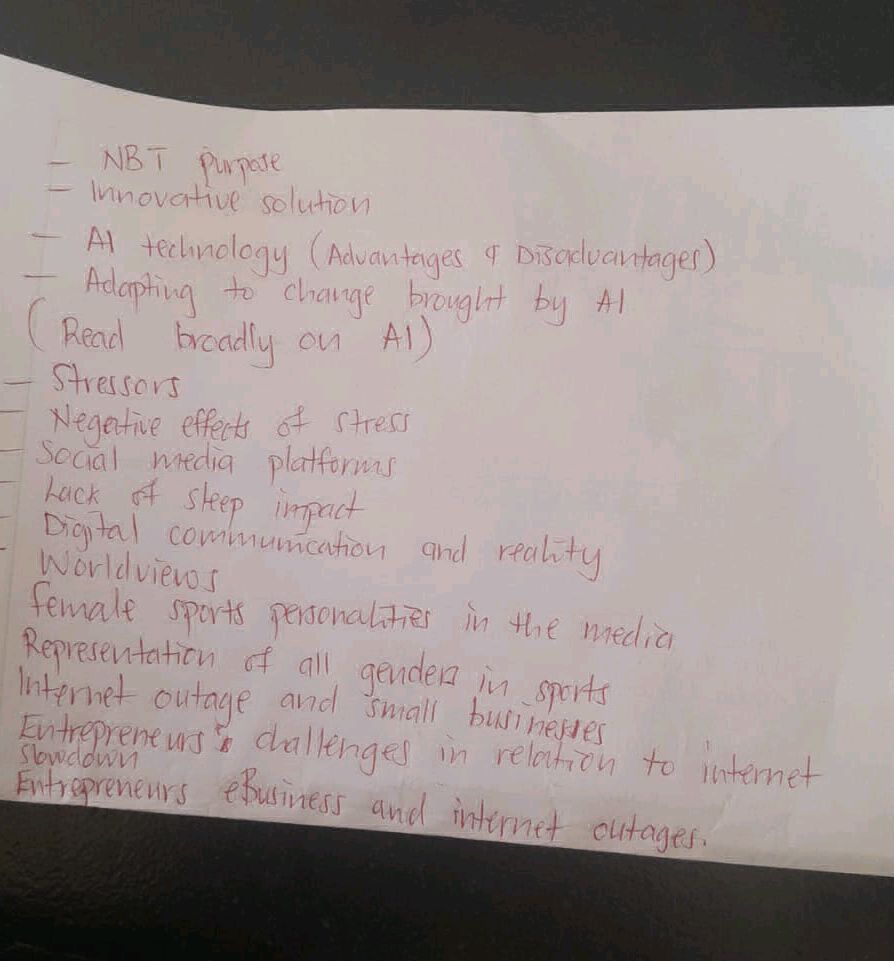 - NBT purpose
- Innovative solution
- AI technology (Advantages & Disadvantages)
- Adapting to change brought by AI
(Read broadly on AI)
- Stressors
- Negative effects of stress
- Social media platforms
- Lack of sleep impact
- Digital communication and reality
Worldviews
female sports personalities in the media
Representation of all genders in sports
Internet outage and small businesses
Entrepreneurs's challenges in relation to internet
slowdown
Entrepreneurs eBusiness and internet outages.